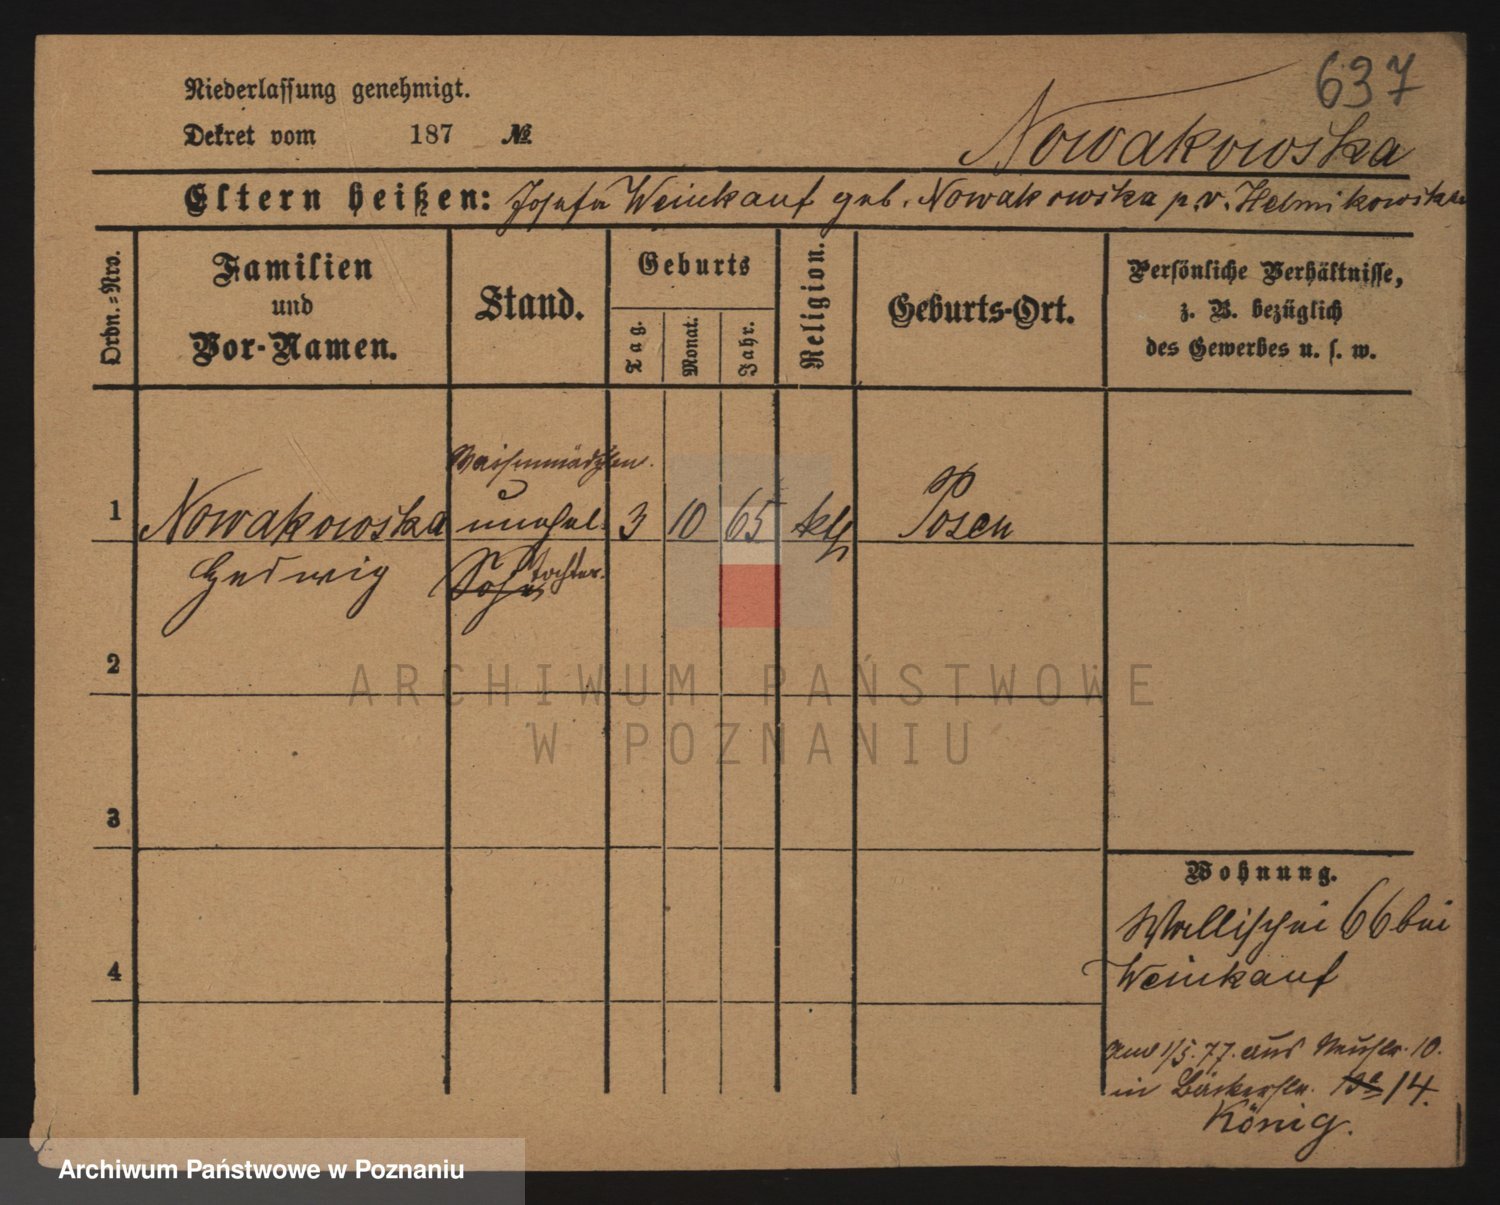 637
Niederlassung genehmigt.
Dekret vom 187 №
Nowakowska
Eltern heißen: Josefa Weinkauf geb. Nowakowska p. v. Helmikowska
Ordn.=Nro.
Familien
und
Vor-Namen.
Stand.
Geburts
Tag.
Monat.
Jahr.
Religion.
Geburts-Ort.
Persönliche Verhältnisse,
z. B. bezüglich
des Gewerbes u. s. w.
Waisenmädchen.
1 Nowakowska unehel. 3 10 65 kth Posen
Hedwig Sohn tochter.
2
3
4
Wohnung.
Wallischei 66 bei
Weinkauf
And 1/5. 77. aus Neustr. 10.
in Bäckerstr. 14.
König.
ARCHIWUM PAŃSTWOWE
W POZNANIU
Archiwum Państwowe w Poznaniu